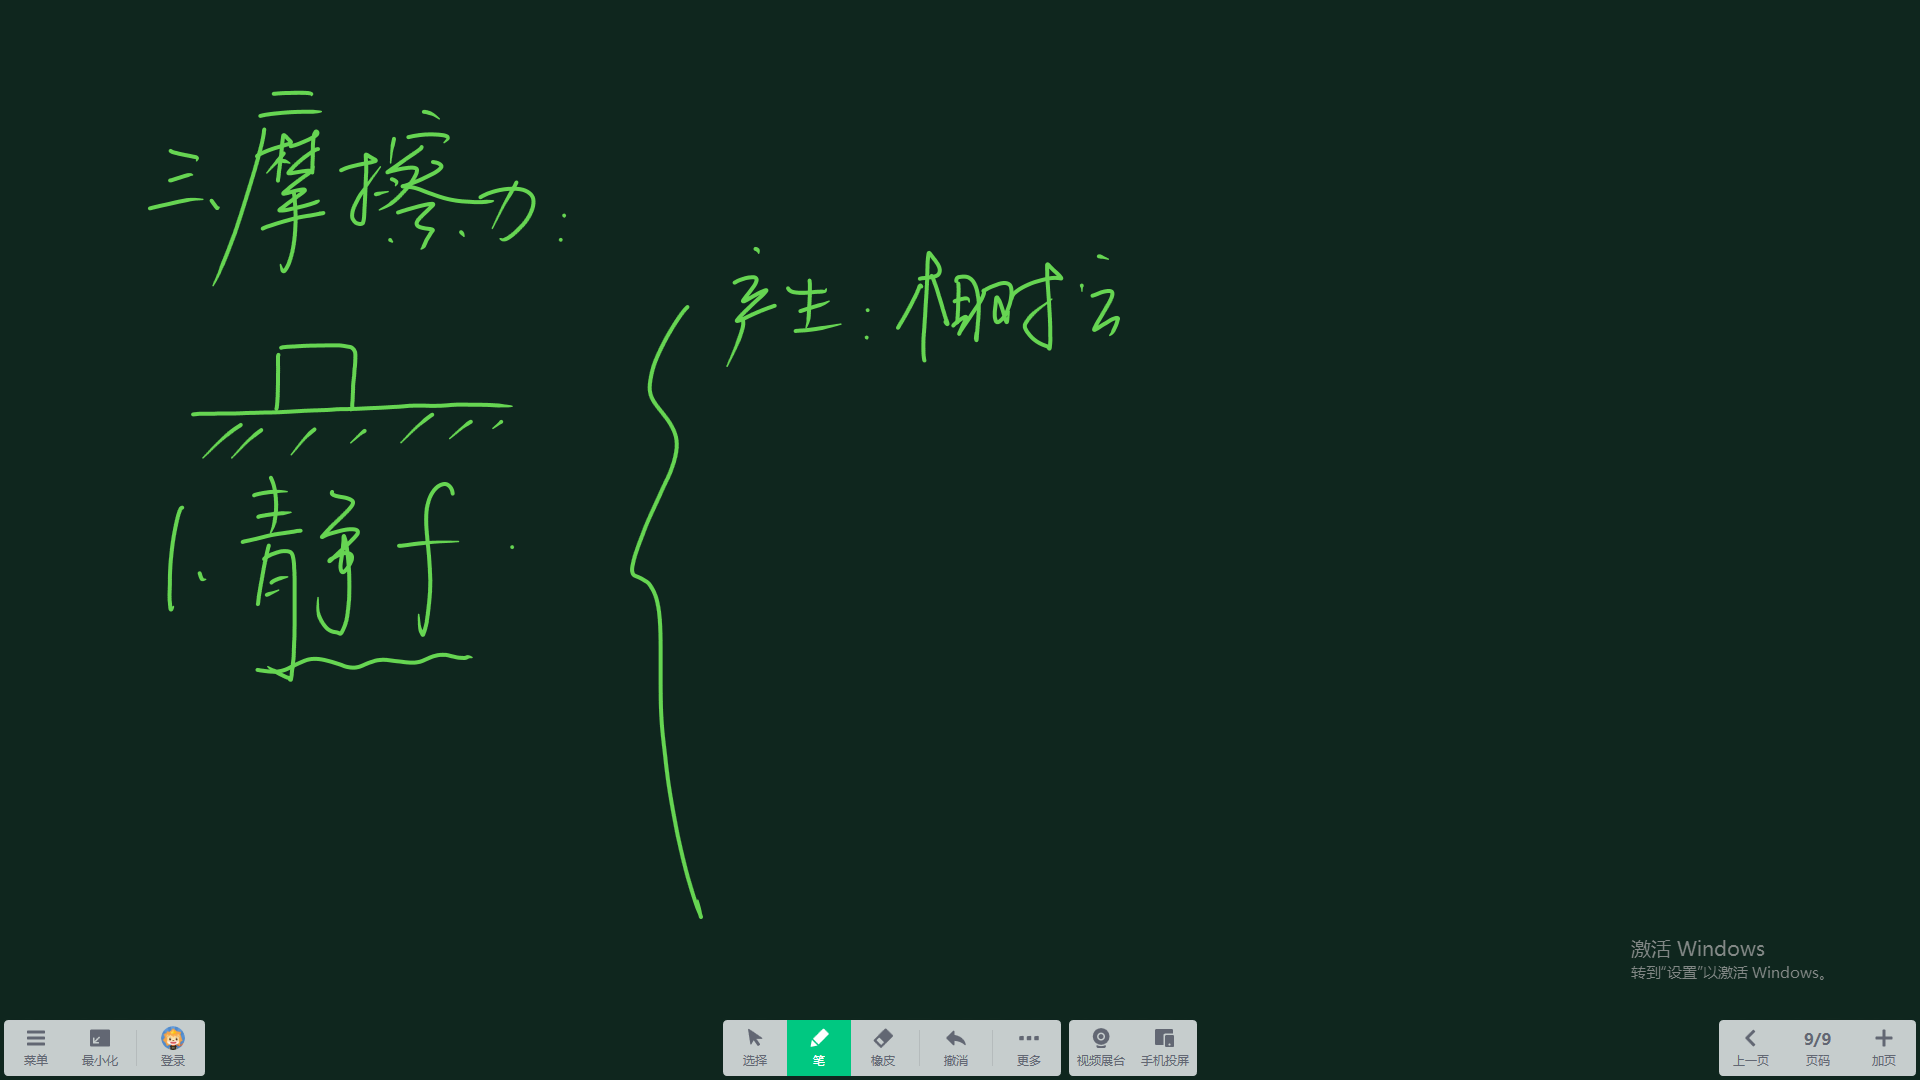 三、摩擦力：
产生：相对
1.静f
激活 Windows
转到“设置”以激活 Windows。
菜单
最小化
登录
选择
笔
橡皮
撤消
更多
视频展台
手机投屏
上一页
9/9
页码
加页